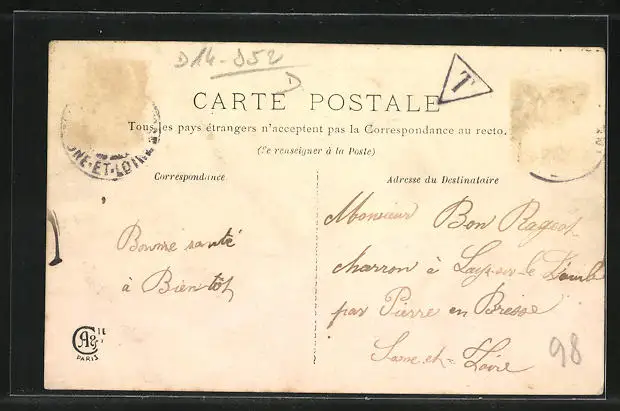 D14-852
D
T
CARTE POSTALE
Tous les pays étrangers n'acceptent pas la Correspondance au recto.
(Se renseigner à la Poste)
Correspondance
Adresse du Destinataire
Bonne santé
à Bientôt
Monsieur Bon Rageot
charron à Lays-sur-le Doubs
par Pierre en Bresse
Saône-et-Loire
98
NE-ET-LOIRE
PARIS